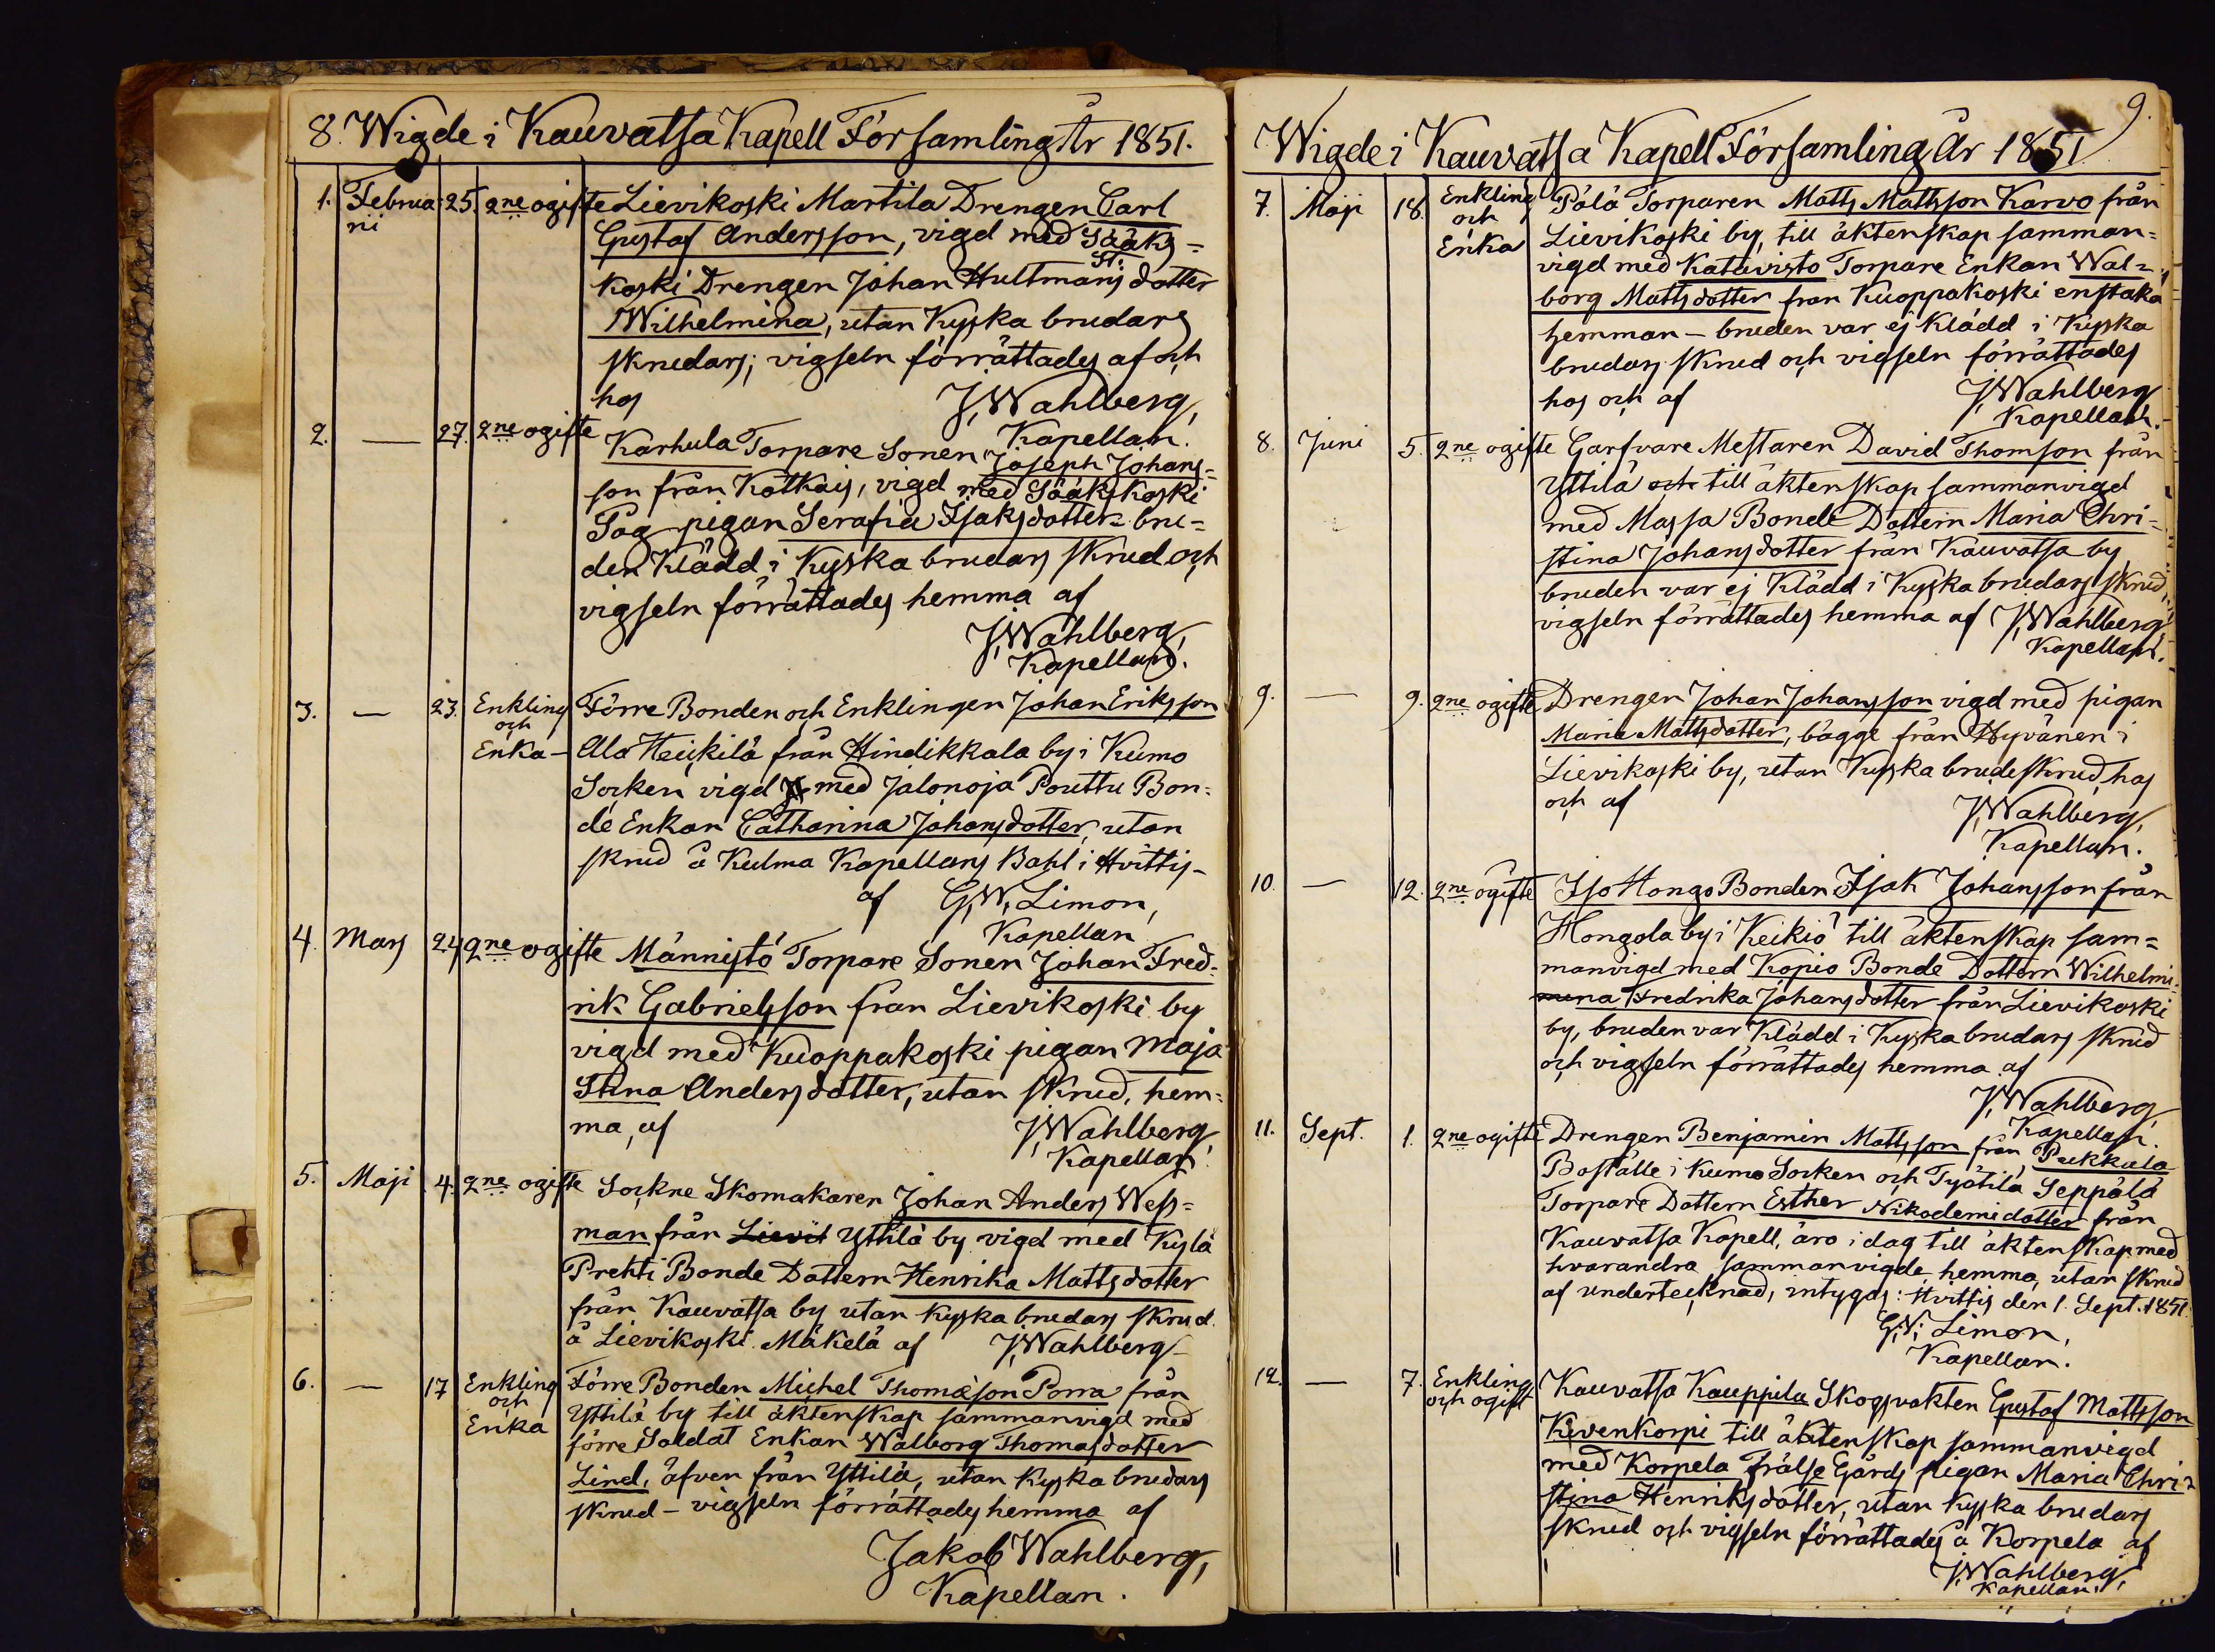 8. Wigde i Kauvatsa Kapell Församling År 1851.
1. Februarii 25. 2ne ogifte Lievikoski Martila Drengen Carl
Gustaf Andersson, vigd med Sääks=
St:
koski Drengen Johan Hultmans dotter
Wilhelmina, utan Kyska brudars
skrudars; vigseln förrättades af och
hos J. Wahlberg,
Kapellan.
2. — 27. 2ne ogifte Karhula Torpare Sonen Joseph Johans=
son från Kötkäis, vigd med Sääkskoski
Pag pigan Serafia Isaksdotter - bru=
den Klädd i Kyska brudars skrud och
vigseln förrättades hemma af
J. Wahlberg,
Kapellan.
3. — 23. Enkling och Enka – Förre Bonden och Enklingen Johan Eriksson
Ala Heikkilä från Hindikkala by i Kumo
Socken vigd med Jalonoja Pouttu Bon=
de Enkan Catharina Johansdotter, utan
skrud å Kulma Kapellans Bohl i Hvittis –
af G. W. Limon,
Kapellan
4. Mars 24 2ne ogifte Männistö Torpare Sonen Johan Fred=
rik Gabrielsson från Lievikoski by
vigd med Kuoppakoski pigan Maja
Stina Andersdotter, utan skrud, hem=
ma, af J. Wahlberg
Kapellan.
5. Maji 4. 2ne ogifte Sockne Skomakaren Johan Anders Wess=
man från Lievik Yttilä by vigd med Kylä
Prehti Bonde Dottern Henrika Mattsdotter
från Kauvatsa by utan kyska brudars skrud
å Lievikoski Mäkelä af J. Wahlberg
6. — 17 Enkling och Enka Förre Bonden Michel Thomasson Porra från
Yttilä by till äktenskap sammanvigd med
förre Soldat Enkan Walborg Thomasdotter
Lind, äfven från Yttilä, utan Kyska brudars
skrud – vigseln förrättades hemma af
Jakob Wahlberg,
Kapellan.
9.
Wigde i Kauvatsa Kapell Församling År 1851
7. Maji 18. Enkling och Enka Pälä Torparen Matts Mattsson Karvo från
Lievikoski by, till äktenskap samman=
vigd med Katavisto Torpare Enkan Wal=
borg Mattsdotter från Kuoppakoski enstaka
hemman – bruden var ej klädd i Kyska
brudars skrud och vigseln förrättades
hos och af J. Wahlberg
Kapellan.
8. Juni 5. 2ne ogifte Garfvare Mestaren David Thomson från
Yttilä och till äktenskap sammanvigd
med Massa Bonde Dottern Maria Chri=
stina Johansdotter från Kauvatsa by
bruden var ej Klädd i Kyska brudars skrud,
vigseln förrättades hemma af J. Wahlberg
Kapellan.
9. — 9. 2ne ogifte Drengen Johan Johansson vigd med pigan
Maria Mattsdotter, bägge från Hyvänen i
Lievikoski by, utan Kyska brudeskrud, hos
och af J. Wahlberg,
Kapellan.
10. — 12. 2ne ogifte Iso Hongo Bonden Isak Johansson från
Hongola by i Keikiö till äktenskap sam=
manvigd med Kopio Bonde Dottern Wilhelmi=
na Fredrika Johansdotter från Lievikoski
by, bruden var Klädd i Kyska brudars skrud
och vigseln förrättades hemma af
J. Wahlberg,
Kapellan.
11. Sept. 1. 2ne ogifte Drengen Benjamin Mattsson från Pukkala
Boställe i Kumo Socken och Työtilä Seppälä
Torpare Dottern Esther Nikodemidotter från
Kauvatsa Kapell, äro i dag till äktenskap med
hvarandra sammanvigde hemma, utan skrud
af undertecknad, intygas: Hvittis den 1. Sept. 1851.
G. W. Limon,
Kapellan.
12. — 7. Enkling och ogift Kauvatsa Kauppila Skogsvakten Gustaf Mattsson
Kivenkorpi till äktenskap sammanvigd
med Korpela Frälse Gårds pigan Maria Chri=
stina Henriksdotter, utan kyska brudars
skrud och vigseln förrättades å Korpela af
J. Wahlberg,
Kapellan.